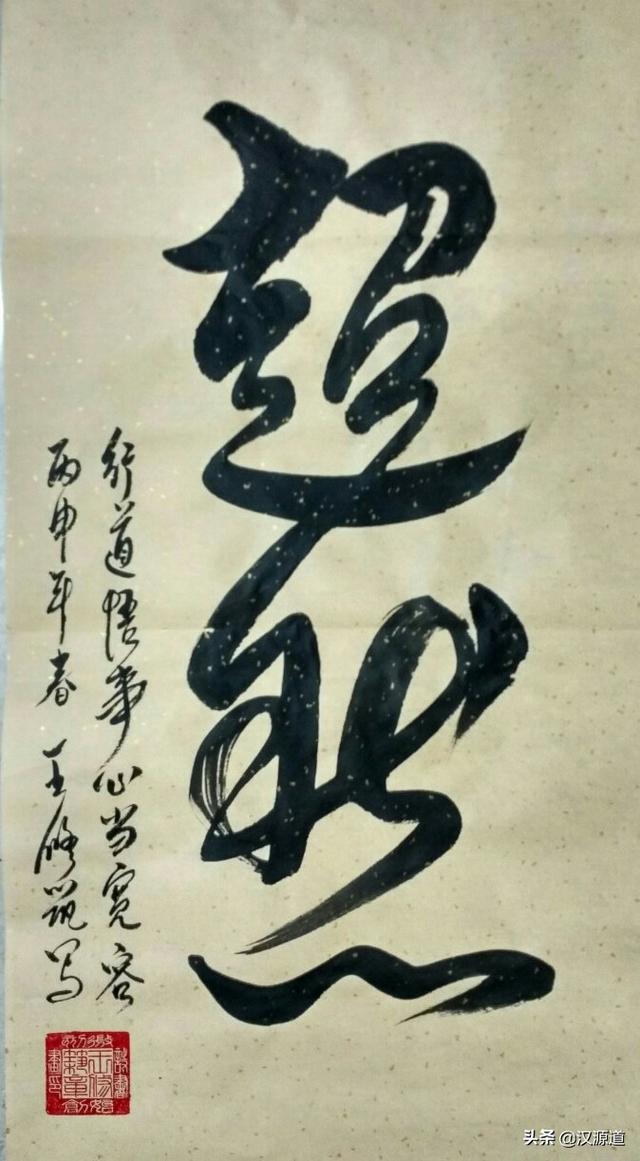 超然
行道悟事心当宽容
丙申年春 王修筑写
头条 @汉源道